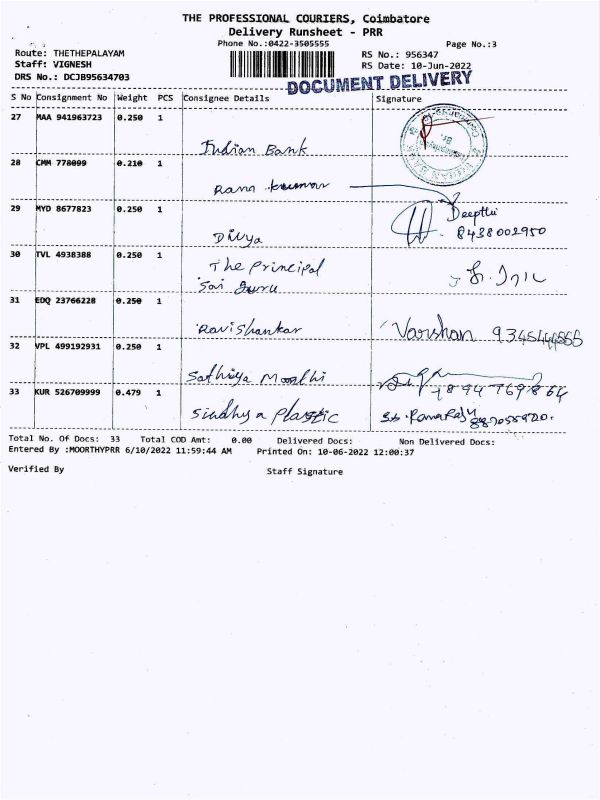 THE PROFESSIONAL COURIERS, Coimbatore
Delivery Runsheet - PRR
Phone No.:0422-3505555 Page No.:3
Route: THETHEPALAYAM RS No.: 956347
Staff: VIGNESH RS Date: 10-Jun-2022
DRS No.: DCJB95634703
DOCUMENT DELIVERY
S No Consignment No Weight PCS Consignee Details Signature
27 MAA 941963723 0.250 1
Indian Bank
28 CMM 778099 0.210 1
Rama kumar
29 MYD 8677823 0.250 1
Deepthi
Divya 8438002950
30 TVL 4938388 0.250 1
The principal
Sai Guru
31 EDQ 23766228 0.250 1
Ravi Shankar Varshan
32 VPL 499192931 0.250 1
Sathiya Moorthi
33 KUR 526709999 0.479 1
Sindhya Plastic
Total No. Of Docs: 33 Total COD Amt: 0.00 Delivered Docs: Non Delivered Docs:
Entered By :MOORTHYPRR 6/10/2022 11:59:44 AM Printed On: 10-06-2022 12:00:37
Verified By Staff Signature